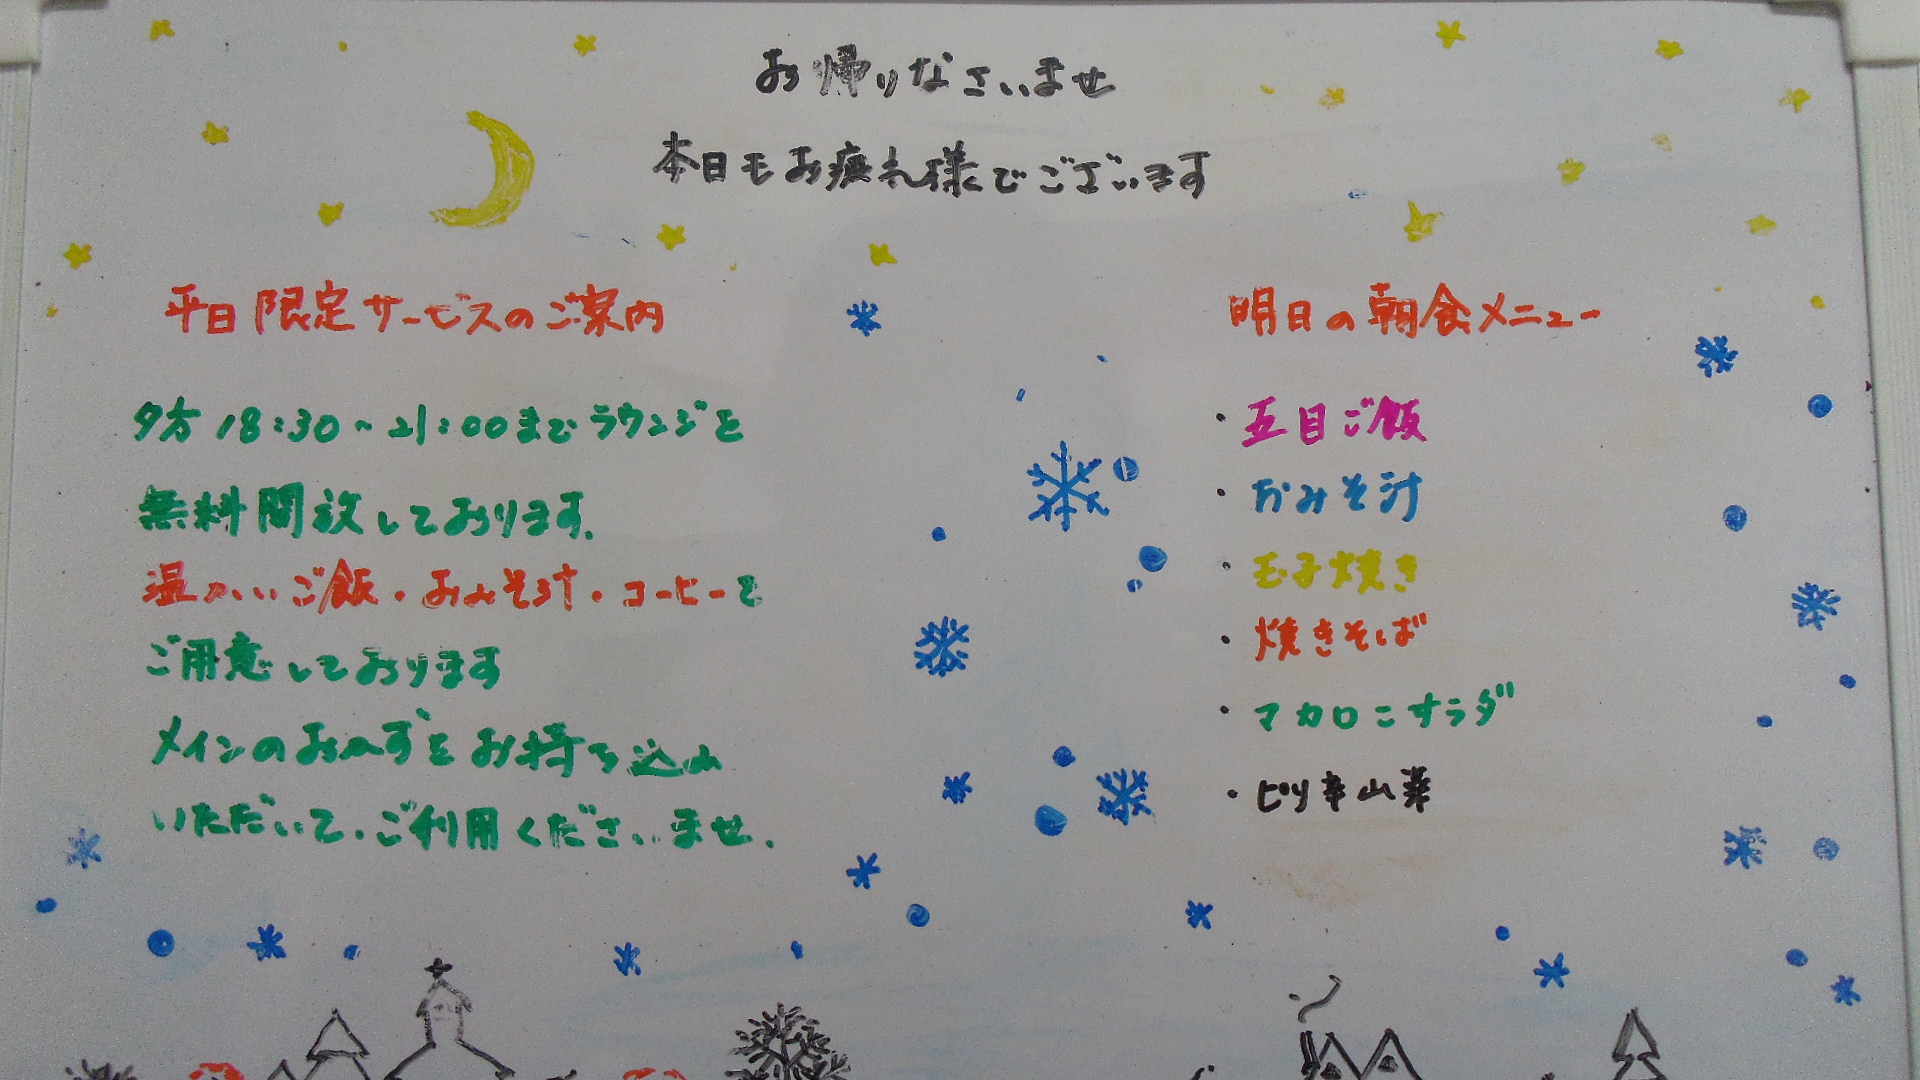 お帰りなさいませ
本日もお疲れ様でございます
平日限定サービスのご案内
夕方18:30~21:00までラウンジを
無料開放しております.
温かいご飯・おみそ汁・コーヒーを
ご用意しております
メインのおかずをお持ち込み
いただいて、ご利用くださいませ.
明日の朝食メニュー
・五目ご飯
・おみそ汁
・玉子焼き
・焼きそば
・マカロニサラダ
・ピリ辛山菜